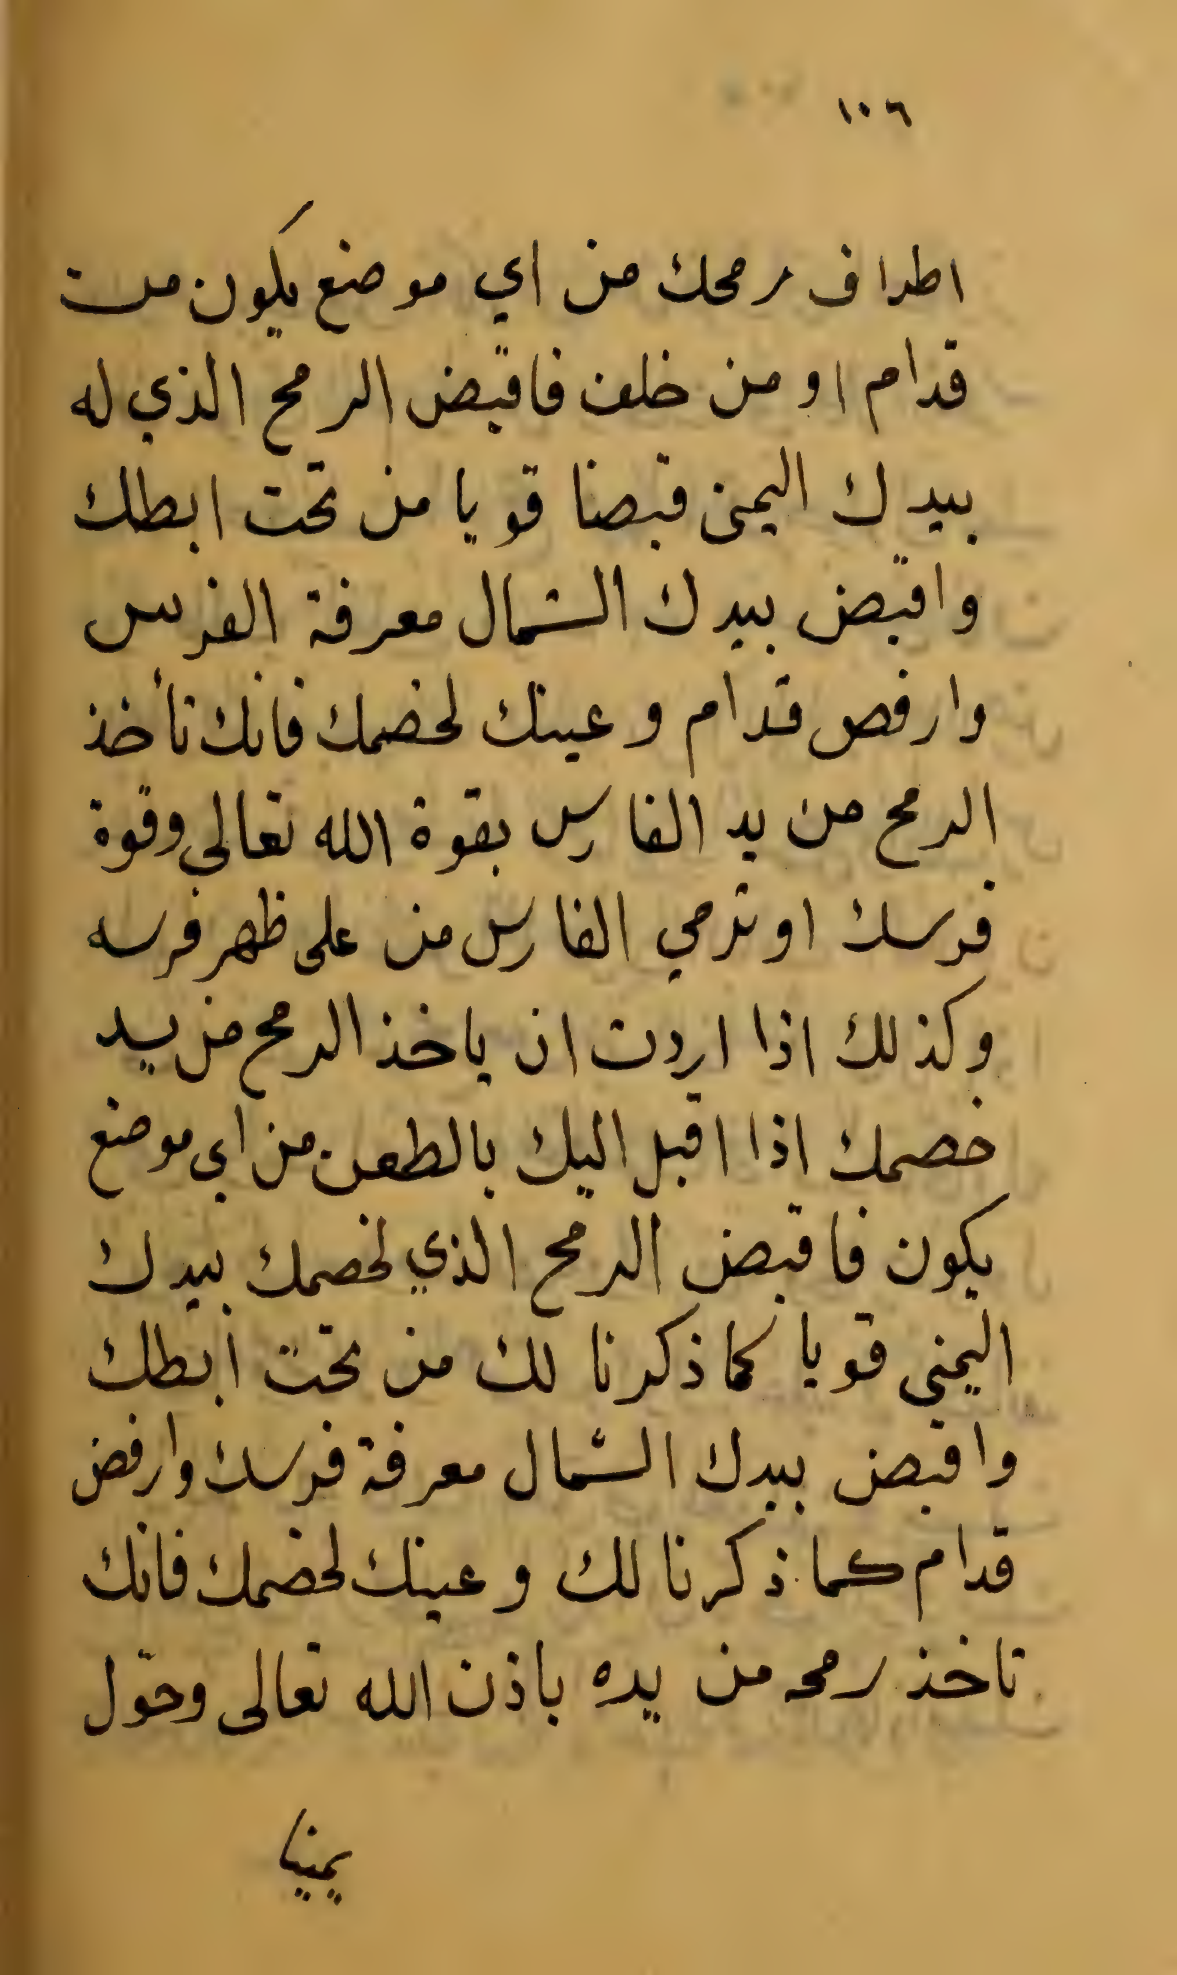 ١٠٦
اطراف رمحك من اي موضع يكون من
قدام او من خلف فاقبض الرمح الذي له
بيدك اليمنى قبضا قويا من تحت ابطك
واقبض بيدك الشمال معرفة الفرس
وارفص قدام وعينك لخصمك فانك تأخذ
الرمح من يد الفارس بقوة الله تعالى وقوة
فرسك او ترمي الفارس من على ظهر فرسه
وكذلك اذا اردت ان ياخذ الرمح من يد
خصمك اذا اقبل اليك بالطعن من اي موضع
يكون فاقبض الرمح الذي لخصمك بيدك
اليمنى قويا كما ذكرنا لك من تحت ابطك
واقبض بيدك الشمال معرفة فرسك وارفض
قدام كما ذكرنا لك وعينك لخصمك فانك
تاخذ رمحه من يده باذن الله تعالى وحوّل
يمينا